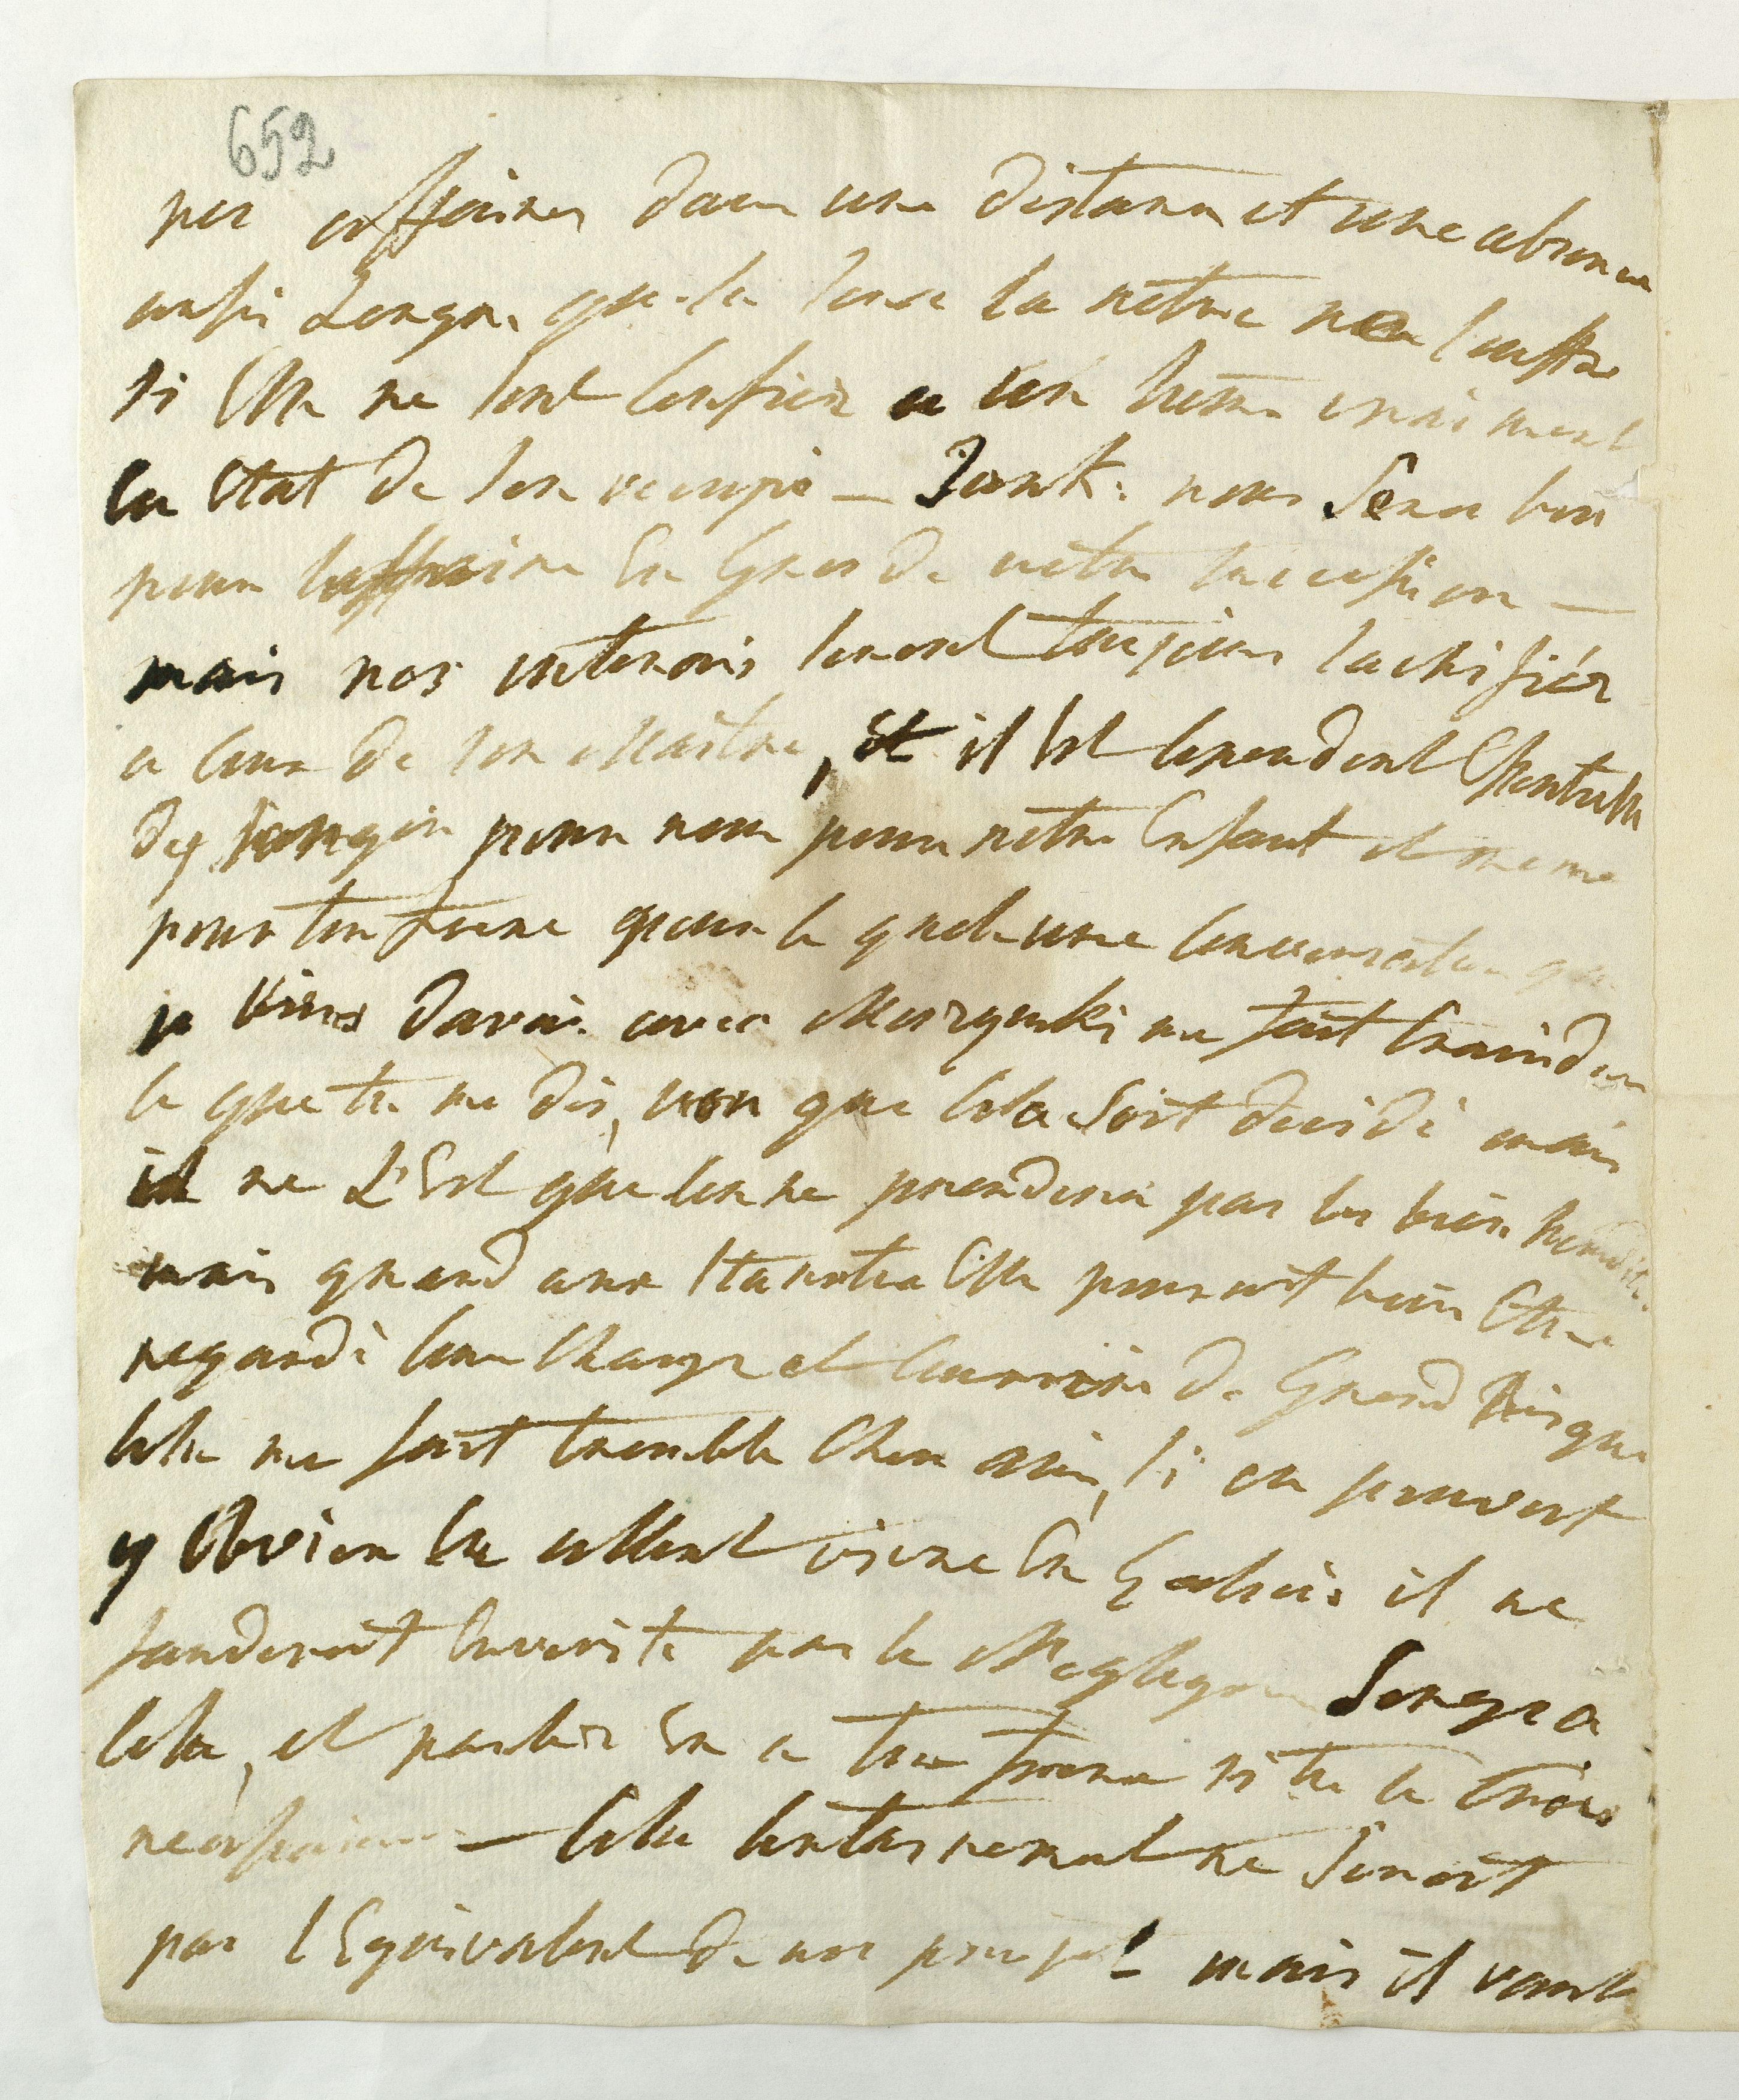 652
nos affaires dans une distance et une absence
aussi Longue que le sera la notre
si Elle ne sont confier a un home vraiment
en Etat de sen occupé — Jank: nous Sera bon
pour laffaire En Gros de notre succession —
mais nos interois seront toujours sachrifiér
a ceux de son Maitre, il Est cependent Essentielle
dy songér pour nous pour notre Enfant et meme
pour ton frere pour le quel une conversation que
je viens davoir avec Muszynski me fait craindre
ce que tu me dis, non que cela soit decidé mais
il ne L'Est que con ne prenderá pas les bien heredit.
mais quand aux starostia Elle pouroit bien Etre
regardé come charge et couroire de Grand Risque
cela me fait tremble cher ami, si on pouvoit
y obvier En allant vivre En Galicie il ne
fauderoit Enverité pas le Neglegér Songe a
cela, et parler En a ton frere si tu le crois
necessaire — Cela certainement ne seroit
pas l'Equivalent de nos projet mais il vaut